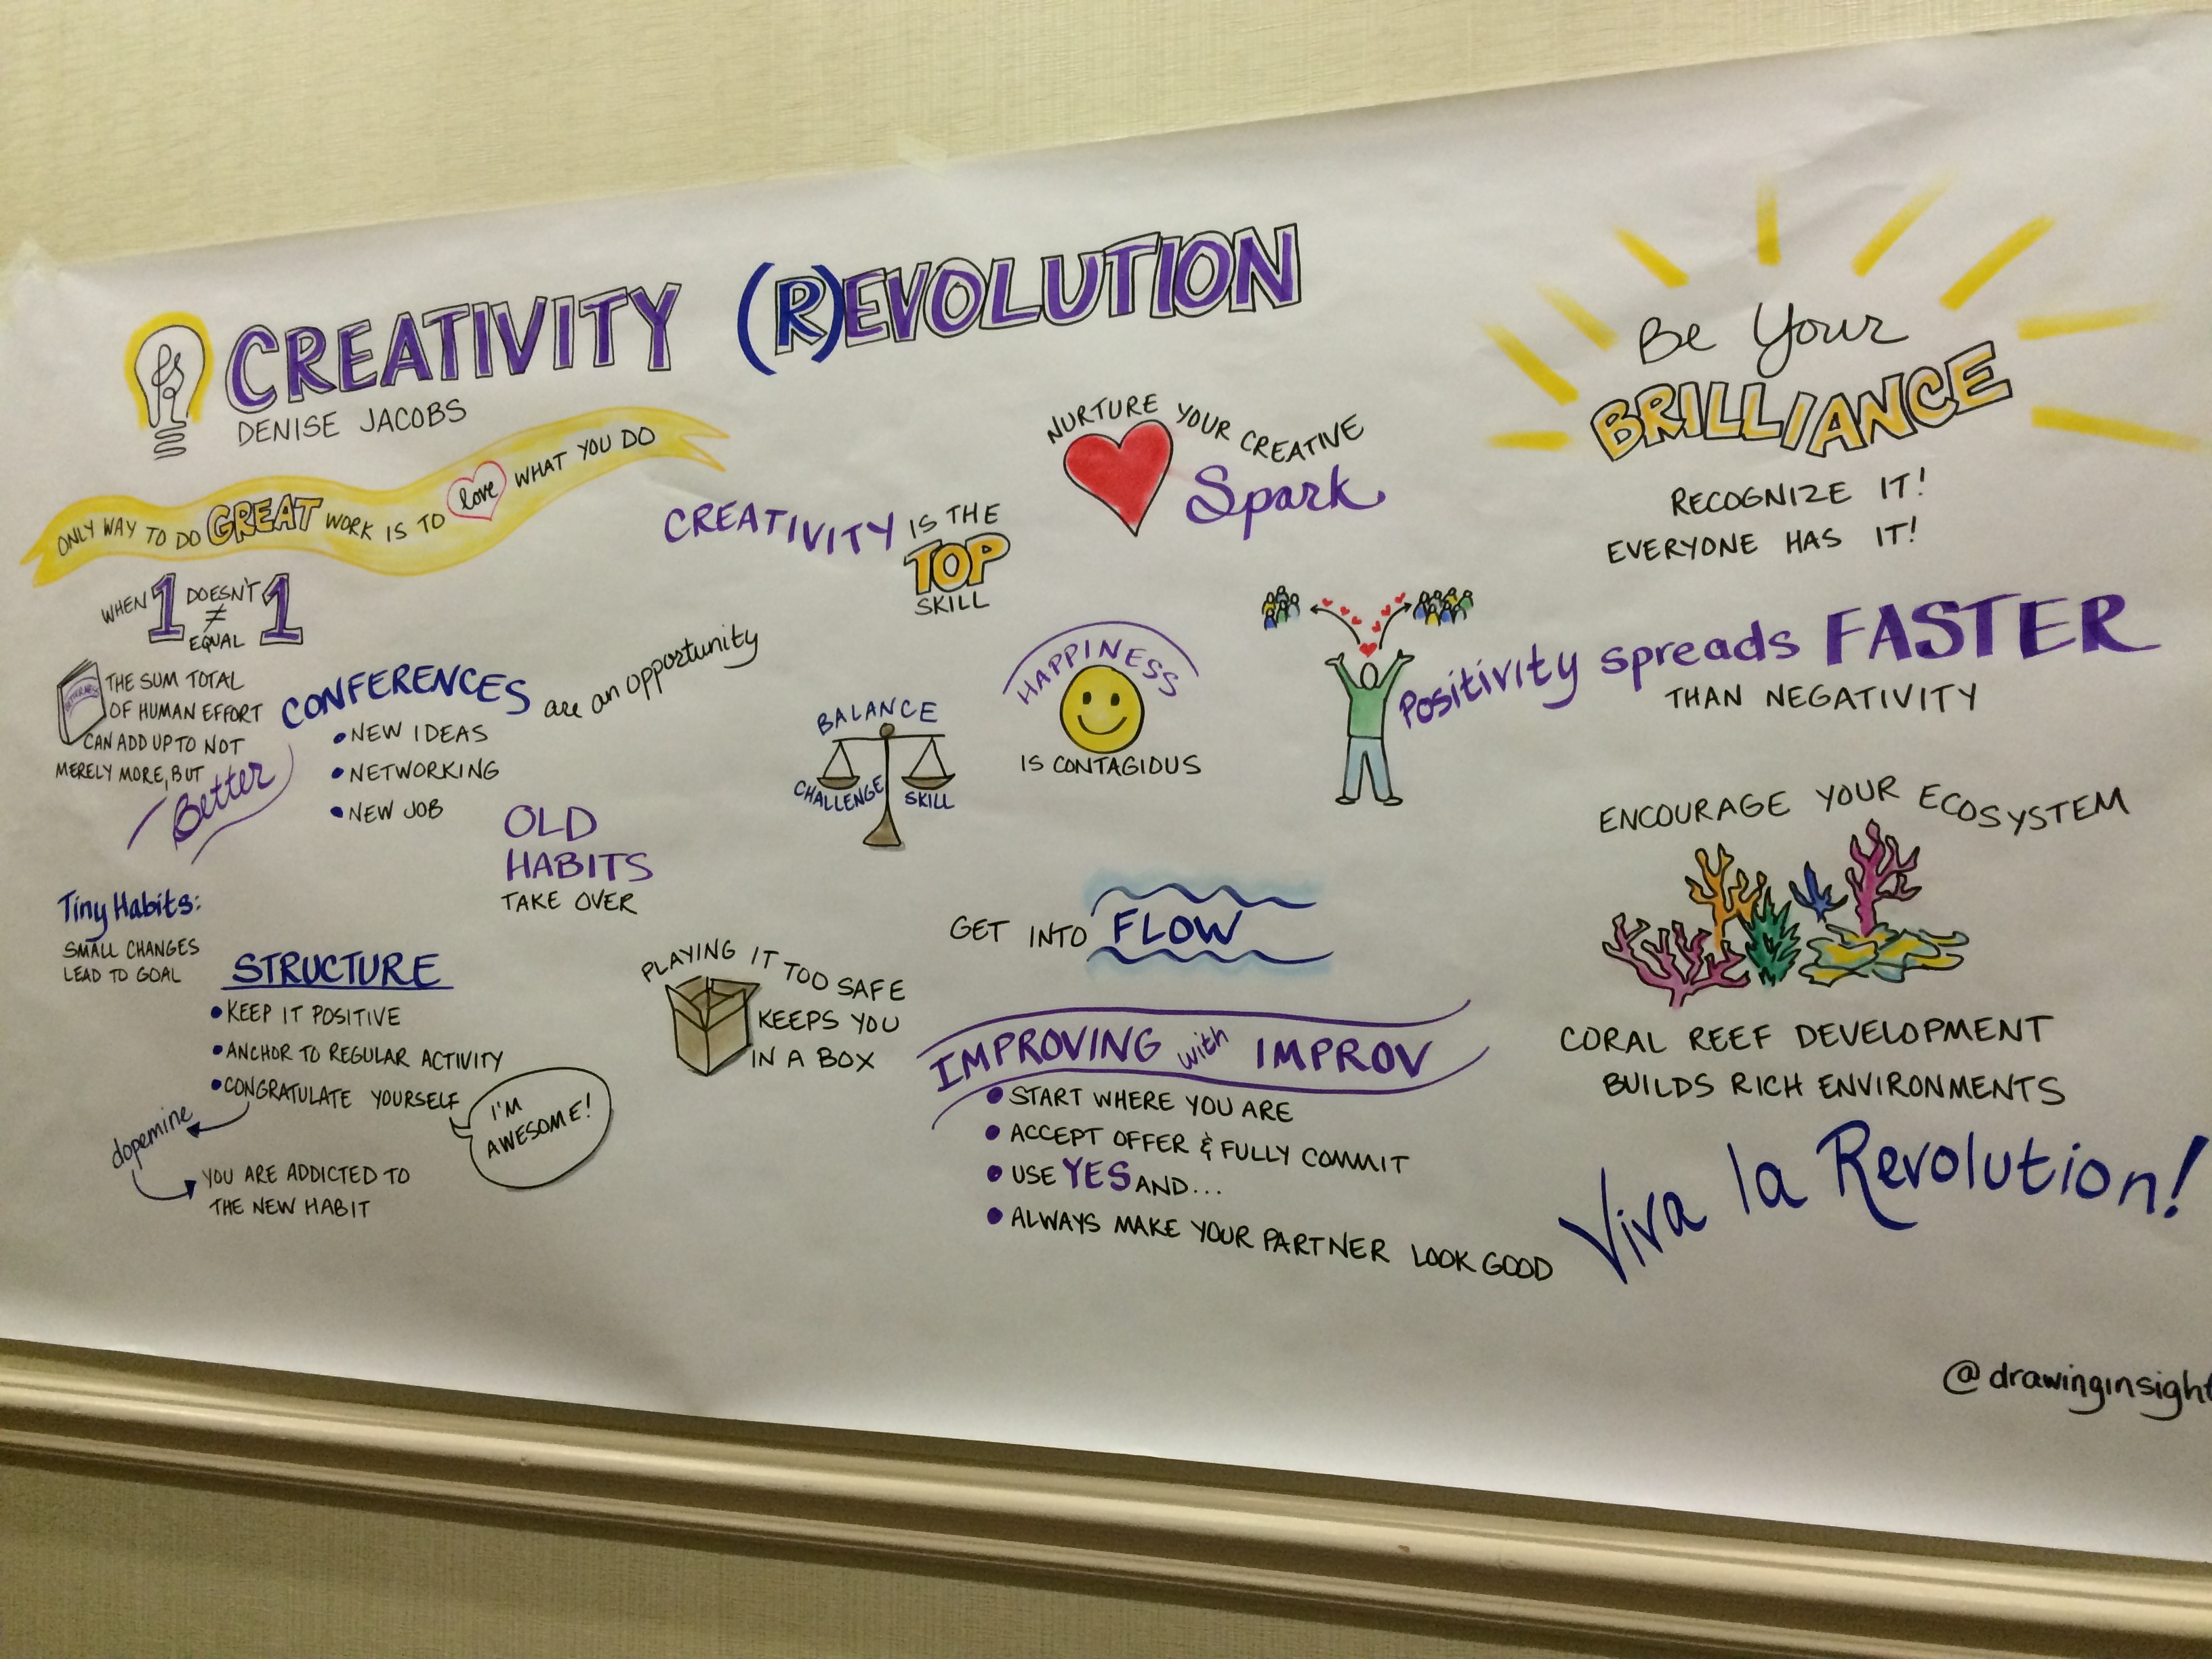 CREATIVITY (R)EVOLUTION
DENISE JACOBS
ONLY WAY TO DO GREAT WORK IS TO love WHAT YOU DO
WHEN 1 DOESN'T 1
≠
EQUAL
THE SUM TOTAL
OF HUMAN EFFORT
CAN ADD UP TO NOT
MERELY MORE, BUT
Better
CONFERENCES are an opportunity
• NEW IDEAS
• NETWORKING
• NEW JOB
OLD
HABITS
TAKE OVER
Tiny Habits:
SMALL CHANGES
LEAD TO GOAL
STRUCTURE
• KEEP IT POSITIVE
• ANCHOR TO REGULAR ACTIVITY
• CONGRATULATE YOURSELF
I'M
AWESOME!
dopemine
YOU ARE ADDICTED TO
THE NEW HABIT
CREATIVITY IS THE
TOP
SKILL
NURTURE YOUR CREATIVE
Spark
BALANCE
CHALLENGE SKILL
HAPPINESS
IS CONTAGIOUS
PLAYING IT TOO SAFE
KEEPS YOU
IN A BOX
GET INTO FLOW
IMPROVING with IMPROV
• START WHERE YOU ARE
• ACCEPT OFFER & FULLY COMMIT
• USE YES AND...
• ALWAYS MAKE YOUR PARTNER LOOK GOOD
Be Your
BRILLIANCE
RECOGNIZE IT!
EVERYONE HAS IT!
Positivity spreads FASTER
THAN NEGATIVITY
ENCOURAGE YOUR ECOSYSTEM
CORAL REEF DEVELOPMENT
BUILDS RICH ENVIRONMENTS
Viva la Revolution!
@drawinginsight